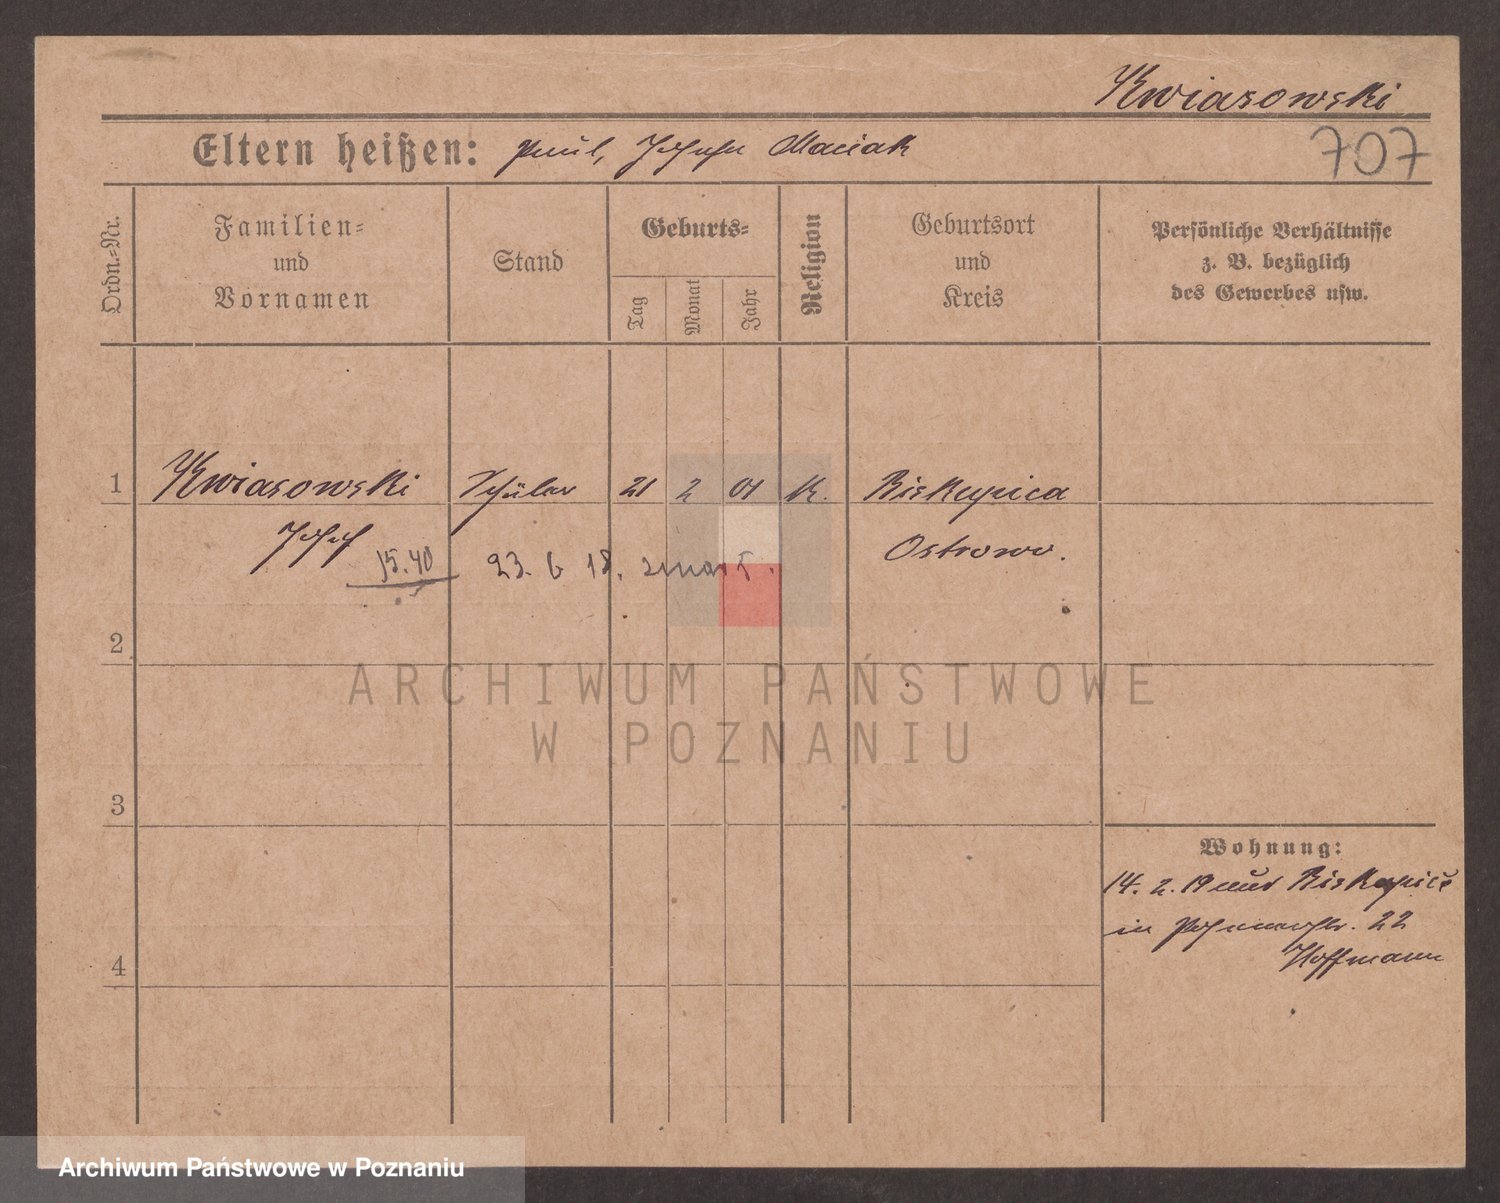 Kwiasowski
707
Eltern heißen: Paul, Josefa Maciak
Ordn.-Nr.
Familien-
und
Vornamen
Stand
Geburts-
Tag
Monat
Jahr
Religion
Geburtsort
und
Kreis
Persönliche Verhältnisse
z. B. bezüglich
des Gewerbes usw.
1 Kwiasowski Schüler 21 2 01 K. Biskupica
Josef Ostrowo.
15.40 23. 6 18.
2
3
4
Wohnung:
14. 2. 19 aus Biskupice
in 22
Hoffmann
ARCHIWUM PAŃSTWOWE
W POZNANIU
Archiwum Państwowe w Poznaniu